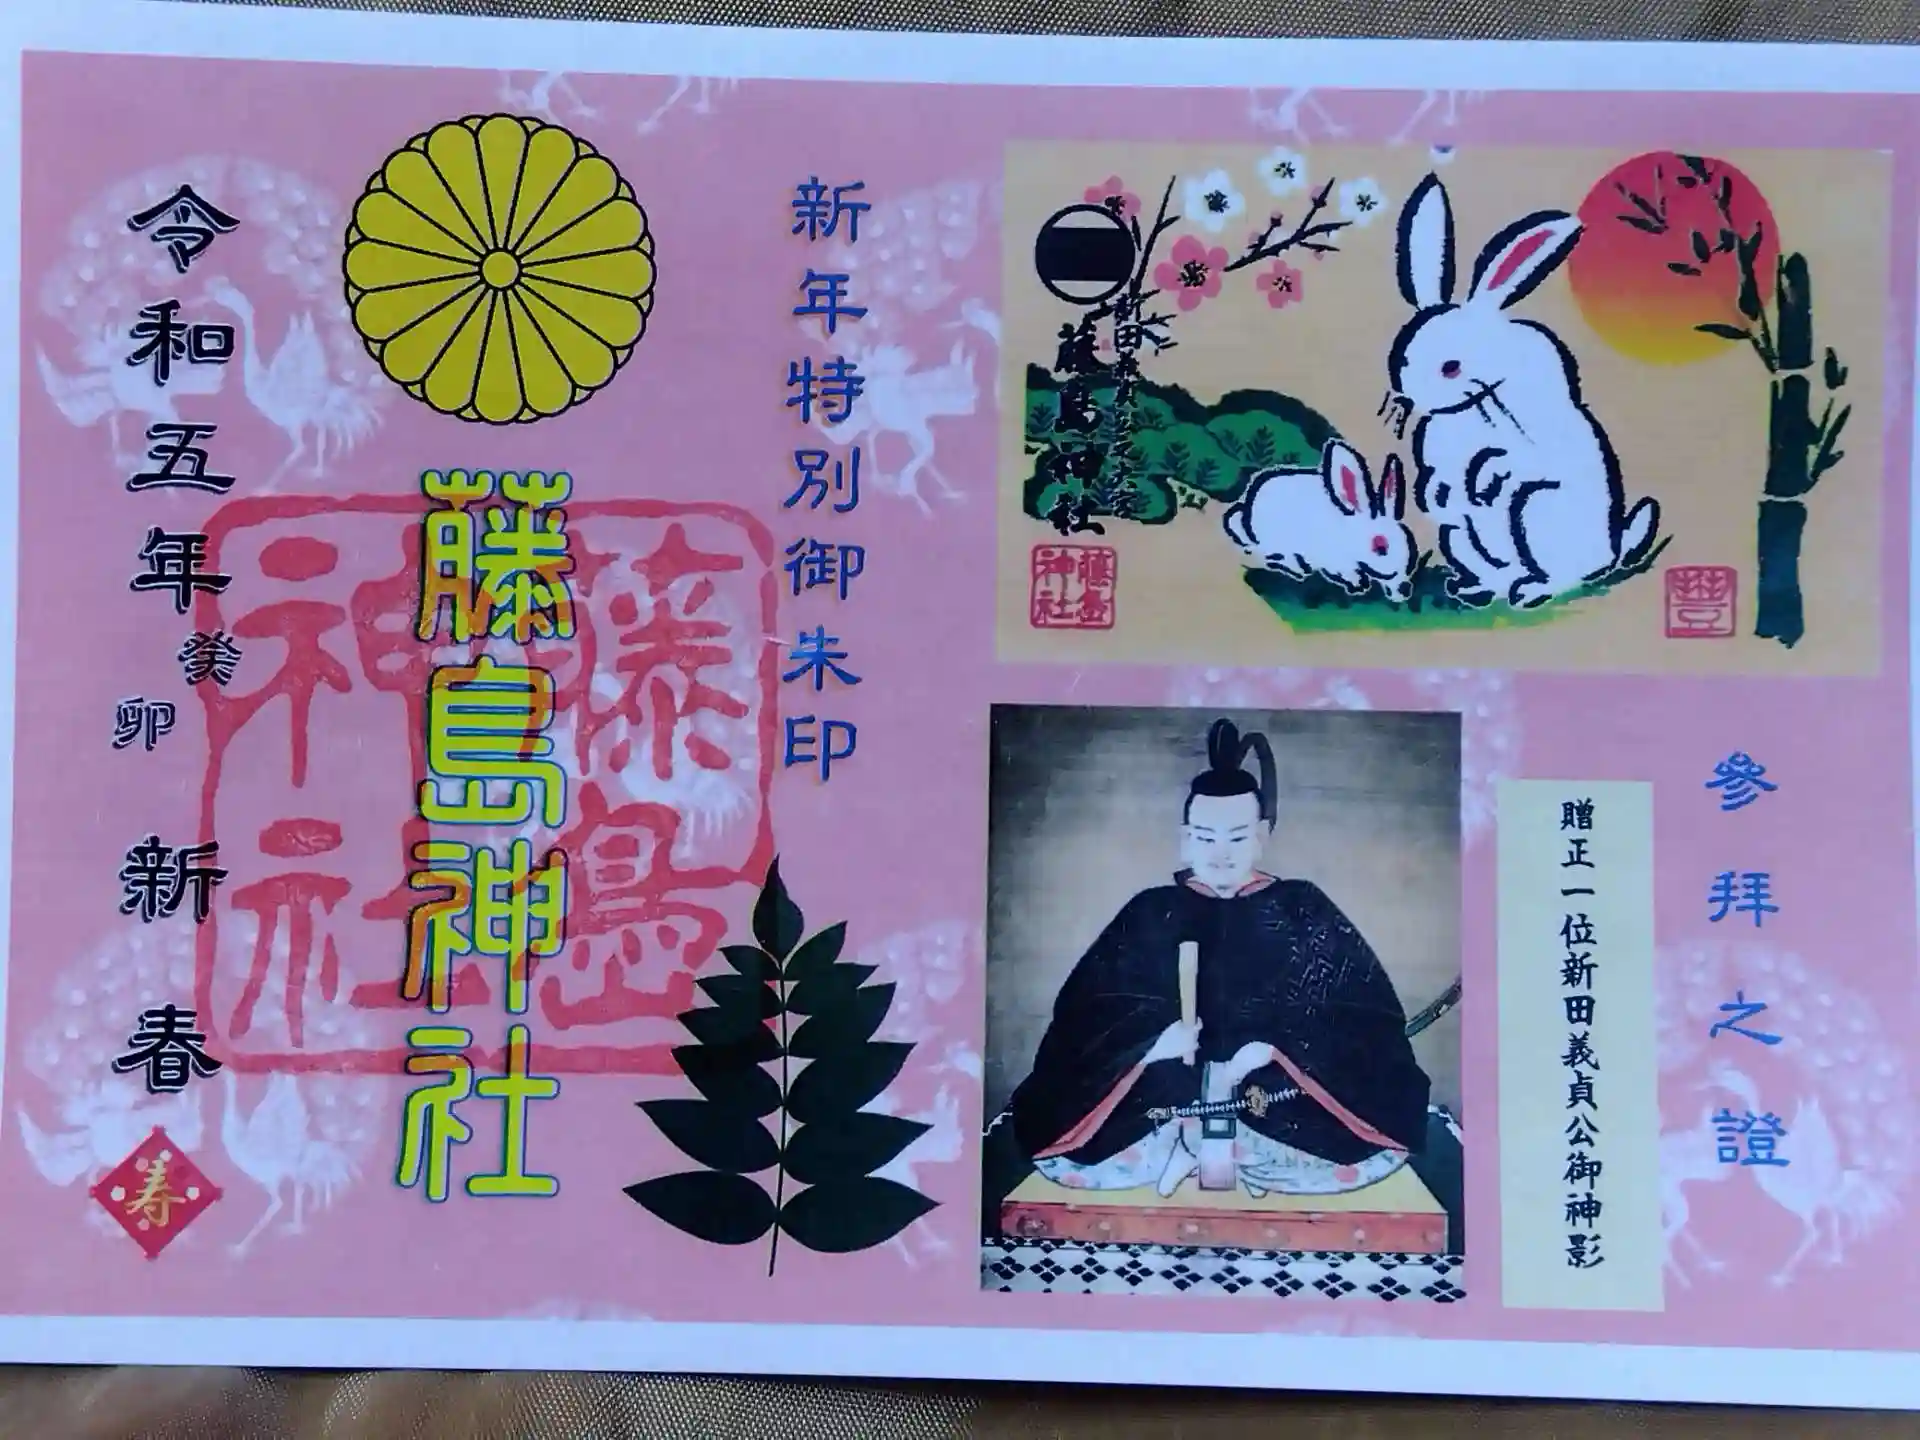 参拜之證
贈正一位新田義貞公御神影
藤島神社
藤島
神社
豊
新年特別御朱印
藤島神社
藤島
神社
令和五年癸卯 新春
寿